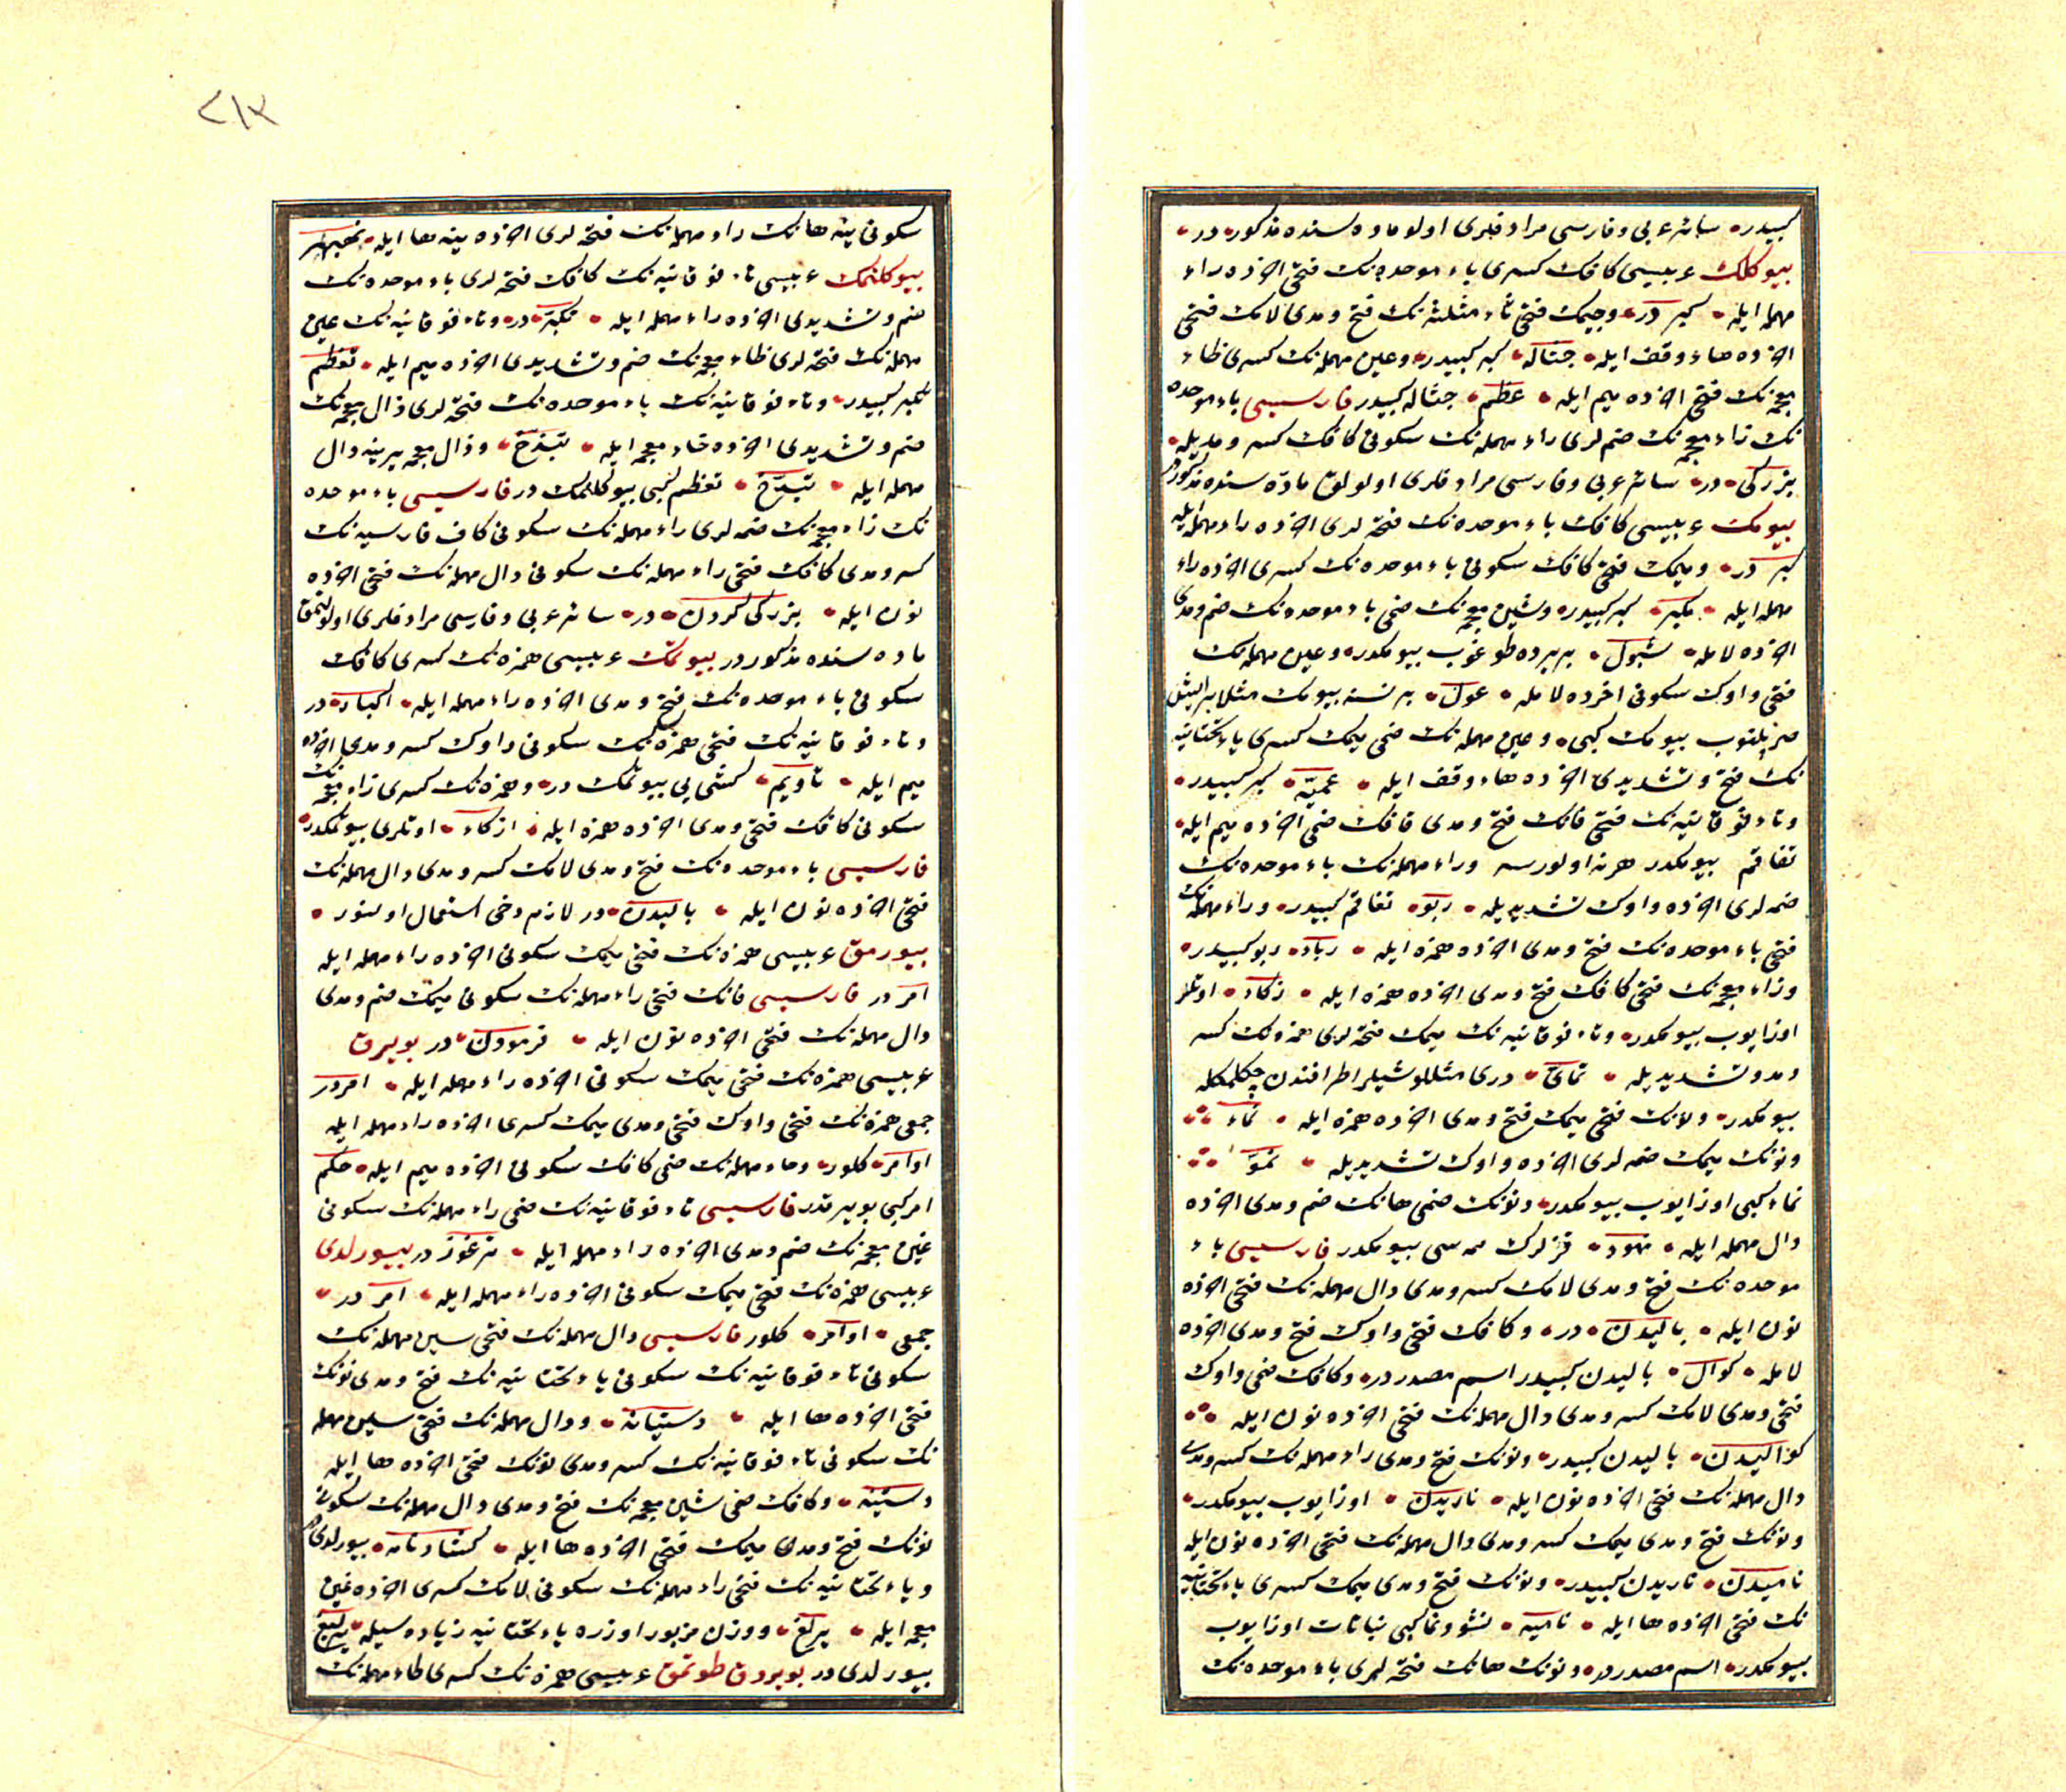 كبيدر سائر عربى وفارسى مرادفلرى اولو ماده سنده مذكوردر
بيوكلك عربيسى كافك كسرى باء موحده نك فتحى آخرده راء
مهمله ايله كبر در وجيمك فتحى ثاء مثلثه نك فتح ومدى لامك فتحى
آخرده هاء وقف ايله جثاله كبر كبيدر وعين مهمله نك كسرى ظاء
معجمه نك فتحى آخرده ميم ايله عظم جثاله كبيدر فارسيسى باء موحده
نك زاء معجمه نك ضملرى راء مهمله نك سكونى كافك كسر ومديله
بزركى در سائر عربى وفارسى مرادفلرى اولولق ماده سنده مذكوردر
بيومك عربيسى كافك باء موحده نك فتحه لرى آخرده راء مهمله ايله
كبر در وميمك فتحى كافك سكونى باء موحده نك كسرى آخرده راء
مهمله ايله مكبر كبر كبيدر وشين معجمه نك ضمى باء موحده نك ضم ومدى
آخرده لامله شبول بر يرده طوغوب بيومكدر وعين مهمله نك
فتحى واوك سكونى آخرده لامله عول بر نسنه بيومك مثلا بر ايش
بيومك كبى وعين مهمله نك ضمى ميمك كسرى ياء تحتانيه
نك فتح وتشديدى آخرده هاء وقف ايله عميّه كبر كبيدر
وتاء فوقانيه نك فتحى فانك فتح ومدى قافك ضمى آخرده ميم ايله
تفاقم بيومكدر هر نه اولورسه وراء مهمله نك باء موحده نك
ضمه لرى آخرده واوك تشديديله ربو تفاقم كبيدر وراء مهمله نك
فتحى باء موحده نك فتح ومدى آخرده همزه ايله رباء ربو كبيدر
وزاء معجمه نك فتحى كافك فتح ومدى آخرده همزه ايله زكاء اوتلر
اوزايوب بيومكدر وتاء فوقانيه نك ميمك فتحه لرى همزه نك كسر
ومد وتشديديله تمائى درى مثللو شيلر اطرافندن چكلمكله
بيومكدر ونونك فتحى ميمك فتح ومدى آخرده همزه ايله نماء
ونونك ميمك ضمه لرى آخرده واوك تشديديله نموّ
نماء كبى اوزايوب بيومكدر ونونك ضمى هانك ضم ومدى آخرده
دال مهمله ايله نهود قزلرك ممه سى بيومكدر فارسيسى باء
موحده نك فتح ومدى لامك كسر ومدى دال مهمله نك فتحى آخرده
نون ايله باليدن در وكافك فتحى واوك فتح ومدى آخرده
لامله كوال باليدن كبيدر اسم مصدردر وكافك ضمى واوك
فتحى ومدى لامك كسر ومدى دال مهمله نك فتحى آخرده نون ايله
كواليدن باليدن كبيدر ونونك فتح ومدى راء مهمله نك كسر ومدى
دال مهمله نك فتحى آخرده نون ايله ناريدن اوزايوب بيومكدر
ونونك فتح ومدى ميمك كسر ومدى دال مهمله نك فتحى آخرده نون ايله
ناميدن ناريدن كبيدر ونونك فتح ومدى ميمك كسرى ياء تحتانيه
نك فتحى آخرده ها ايله ناميه نشو ونما كبى نباتات اوزايوب
بيومكدر اسم مصدردر ونونك هانك فتحه لرى باء موحده نك
٢١٣
سكونى ينه هانك راء مهمله نك فتحه لرى آخرده ينه ها ايله
بيوكلنمك عربيسى تاء فوقانيه نك كافك فتحه لرى باء موحده نك
ضم وتشديدى آخرده راء مهمله ايله تكبر در وتاء فوقانيه نك عين
مهمله نك فتحه لرى ظاء معجمه نك ضم وتشديدى آخرده ميم ايله تعظم
تكبر كبيدر وتاء فوقانيه نك باء موحده نك فتحه لرى ذال معجمه نك
ضم وتشديدى آخرده خاء معجمه ايله تبذخ وذال معجمه يرينه دال
مهمله ايله تبدخ تعظم كبى بيوكلنمك در فارسيسى باء موحده
نك زاء معجمه نك ضمه لرى راء مهمله نك سكونى كاف فارسيه نك
كسر ومدى كافك فتحى راء مهمله نك سكونى دال مهمله نك فتحى آخرده
نون ايله بزركى كردن در سائر عربى وفارسى مرادفلرى اولولنمق
ماده سنده مذكوردر بيوتمك عربيسى همزه نك كسرى كافك
سكونى باء موحده نك فتح ومدى آخرده راء مهمله ايله اكبار در
وتاء فوقانيه نك فتحى همزه نك سكونى واوك كسر ومدى آخرده
ميم ايله تأويم كشى يى بيوتمك در وهمزه نك كسرى زاء معجمه نك
سكونى كافك فتحى ومدى آخرده همزه ايله ازكاء اوتلرى بيوتمكدر
فارسيسى باء موحده نك فتح ومدى لامك كسر ومدى دال مهمله نك
فتحى آخرده نون ايله باليدن در لازم دخى استعمال اولنور
بيورمق عربيسى همزه نك فتحى ميمك سكونى آخرده راء مهمله ايله
امر در فارسيسى فانك فتحى راء مهمله نك سكونى ميمك ضم ومدى
دال مهمله نك فتحى آخرده نون ايله فرمودن در بويرق
عربيسى همزه نك فتحى ميمك سكونى آخرده راء مهمله ايله امر در
جمعى همزه نك فتحى واوك فتحى ومدى ميمك كسرى آخرده راء مهمله ايله
اوامر كلور وحاء مهمله نك ضمى كافك سكونى آخرده ميم ايله حكم
امر كبى بويرقدر فارسيسى تاء فوقانيه نك ضمى راء مهمله نك سكونى
غين معجمه نك ضم ومدى آخرده راء مهمله ايله ترغور در بيورلدى
عربيسى همزه نك فتحى ميمك سكونى آخرده راء مهمله ايله امر در
جمعى اوامر كلور فارسيسى دال مهمله نك فتحى سين مهمله نك
سكونى تاء فوقانيه نك سكونى ياء تحتانيه نك فتح ومدى نونك
فتحى آخرده ها ايله دستيانه ودال مهمله نك فتحى سين مهمله
نك سكونى تاء فوقانيه نك كسر ومدى نونك فتحى آخرده ها ايله
دستينه وكافك ضمى شين معجمه نك فتح ومدى دال مهمله نك سكونى
نونك فتح ومدى ميمك فتحى آخرده ها ايله كشادنامه بيورلدى در
وياء تحتانيه نك فتحى راء مهمله نك سكونى لامك كسرى آخرده غين
معجمه ايله يرلغ ووزن مزبور اوزره ياء تحتانيه زياده سيله يرليغ
بيورلدى در بويروق طوتمق عربيسى همزه نك كسرى طاء مهمله نك